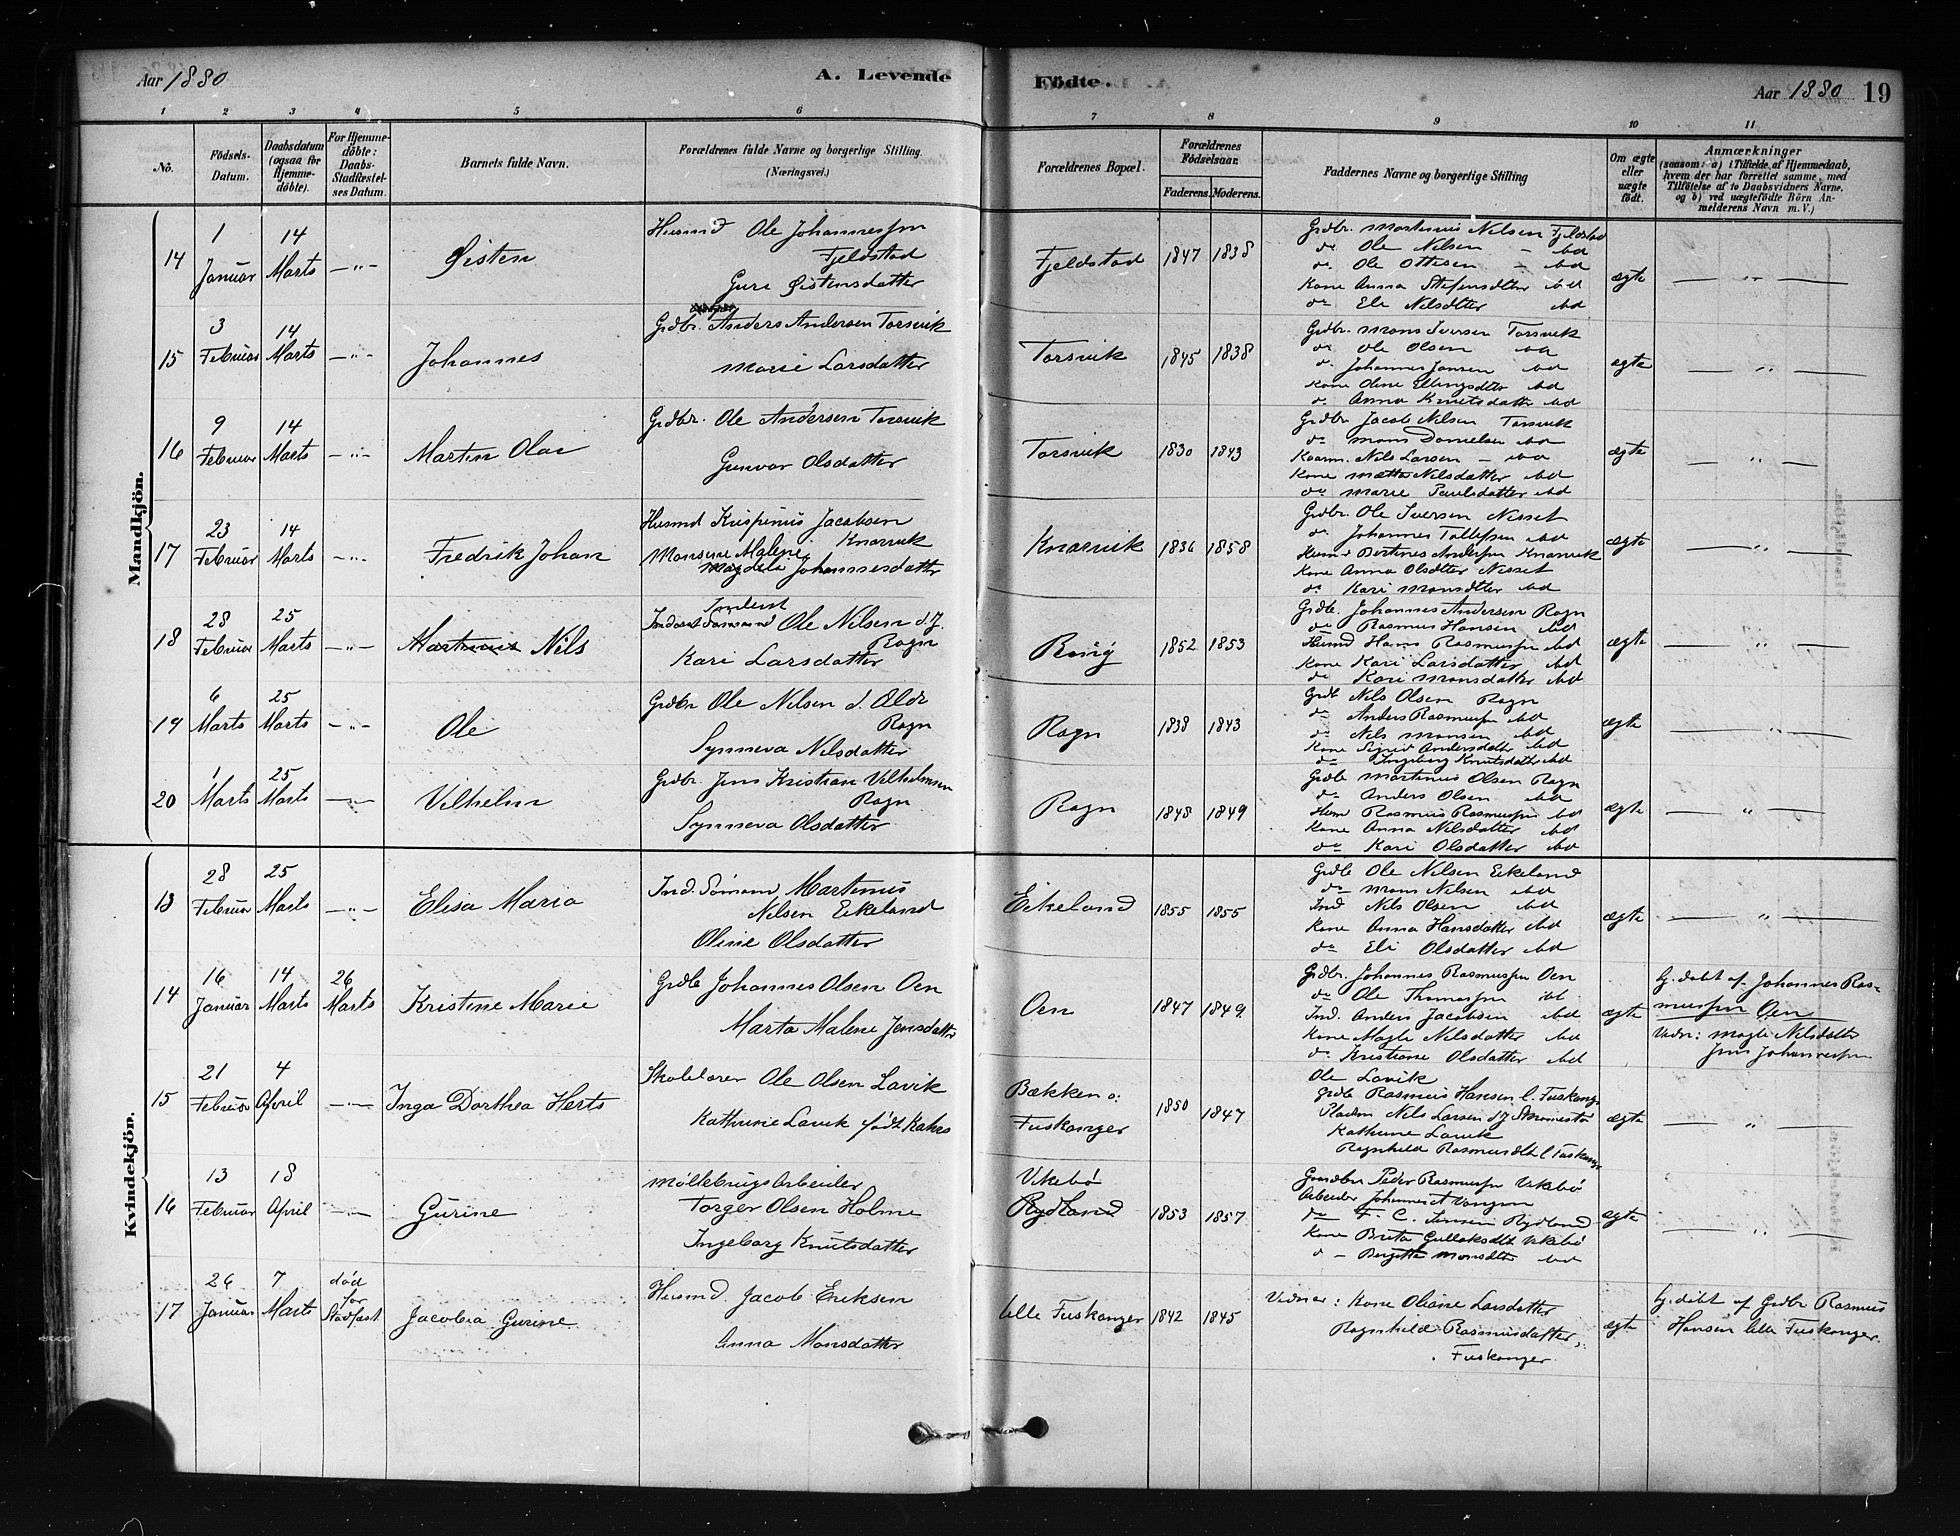 Aar 1880
A. Levende
Födte.
Aar 1880 19
1 2 3 4 5 6 7 8 9 10 11
No.
Födsels-Datum.
Daabsdatum (ogsaa for Hjemme-döbte).
For Hjemme-döbte: Daabs-Stadfæstelses Datum.
Barnets fulde Navn.
Forældrenes fulde Navne og borgerlige Stilling. (Næringsvei.)
Forældrenes Bopæl.
Forældrenes Födselsaar.
Faderens. Moderens.
Faddernes Navne og borgerlige Stilling
Om ægte eller uægte födt.
Anmærkninger
(saasom: a) i Tilfælde af Hjemmedaab, hvem der har forrettet samme, med Tilföielse af to Daabsvidners Navne, og b) ved uægtefödte Börn Anmelderens Navn m. V.)
Mandkjön.
14 1 Januar 14 Marts Østen
Husmd Ole Johannessen
Fjeldstad
Guri Østensdatter
Fjeldstad 1847 1838
Grdbr. Martinus Nilsen Fjeldstad
do Ole Nilsen ibd
do Ole Ottesen ibd
Kone Anna Stefensdtter ibd
do Eli Nilsdtter ibd
ægte
15 3 Februar 14 Marts Johannes
Grdbr. Anders Andersen Torsvik
Marie Larsdatter
Torsvik 1845 1838
Grdbr. Mons Iversen Torsvik
do Ole Olsen ibd
do Johannes Jansen ibd
Kone Oline Ellingsdtter ibd
do Anna Knutsdatter ibd
ægte
16 9 Februar 14 Marts Martin Olai
Grdbr. Ole Andersen Torsvik
Gunvor Olsdatter
Torsvik 1830 1843
Grdbr Jacob Nilsen Torsvik
do Mons Danielsen ibd
Kaarm. Nils Larsen ibd
Kone Mætte Nilsdatter ibd
do Marie Paulsdatter ibd
ægte
17 23 Februar 14 Marts Fredrik Johan
Husmd Krispinus Jacobsen
Knarvik
Monsine Malene
Magdela Johannesdatter
Knarvik 1836 1858
Grdbr. Ole Iversen Nesset
do Johannes Tollefsen ibd
Husmd Bertines Andersen Knarvik
Kone Anna Olsdtter Nesset
do Kari Monsdtter ibd
ægte
18 28 Februar 25 Marts Martinus Nils
Inderst
Ole Nilsen d. y.
Rogn
Kari Larsdatter
1852 1853
Grdb. Johannes Andersen Rogn
do Rasmus Hansen ibd
Husmd Hans Rasmussen ibd
Kone Kari Larsdatter ibd
do Kari Monsdatter ibd
ægte
19 6 Marts 25 Marts Ole
Grdbr Ole Nilsen d. Ældr
Rogn
Synneva Nilsdatter
Rogn 1838 1843
Grdb Nils Olsen Rogn
do Anders Rasmussen ibd
do Nils Monsen ibd
Kone Signe Andersdatter ibd
do Ingeborg Knutsdatter ibd
ægte
20 1 Marts 25 Marts Vilhelm
Grdbr. Jens Kristian Vilhelmsen
Rogn
Synneva Olsdatter
Rogn 1848 1849
Grdb Martinus Olsen Rogn
do Anders Olsen ibd
Husm Rasmus Rasmussen ibd
Kone Anna Nilsdatter ibd
do Kari Olsdatter ibd
ægte
Kvindekjön.
13 28 Februar 25 Marts Elisa Maria
Ind. Sömand Martinus
Nilsen Eikeland
Oline Olsdatter
Eikeland 1855 1855
Grdb Ole Nilsen Eikeland
do Mons Nilsen ibd
Ind Nils Olsen ibd
Kone Anna Hansdatter ibd
do Eli Olsdatter ibd
ægte
14 16 Januar 14 Marts 26 Marts Kristine Marie
Grdb Johannes Olsen Oen
Marta Malene Jensdatter
Oen 1847 1849
Grdbr. Johannes Rasmussen Oen
do Ole Thomassen ibd
Ind. Anders Jacobsen ibd
Kone Magle Nilsdatter ibd
do Kristiane Olsdatter ibd
ægte
hj. døbt af Johannes Ras-
mussen Oen
Vidn: Magle Nilsdatter
Jens Johannessen
15 21 Februar 4 April Inga Dorthea Herts
Skolelærer Ole Olsen Lavik
Kathrine Lavik født Kahrs
Bækken o:
Fuskanger
1850 1847
Ole Lavik
Grdb Rasmus Hansen l. Fuskang.
Pladsm Nils Larsen d y
Kathrine Lavik
Ragnhild Rasmusdtt l Fuskang.
ægte
16 13 Februar 18 April Gurine
Møllebrugsarbeider
Torger Olsen Holme
Ingeborg Knutsdatter
Vikebø
Rydland
1853 1857
Grundbr Peder Rasmussen Vikebø
Arbeider Johannes
do F. C. Jensen Rydland
Kone Brita Gullaksdtt Vikebø
do Birgitte Monsdtt ibd
ægte
17 26 Januar 7 Marts død før Stadfæst Jacobea Gurine
Husmd. Jacob Eriksen
Anna Monsdatter
lille Fuskanger 1842 1845
Vidner: Kone Oliane Larsdatter
Ragnhild Rasmusdatter,
Fuskanger.
ægte
hj. døbt af Grdbr Rasmus
Hansen lille Fuskanger.